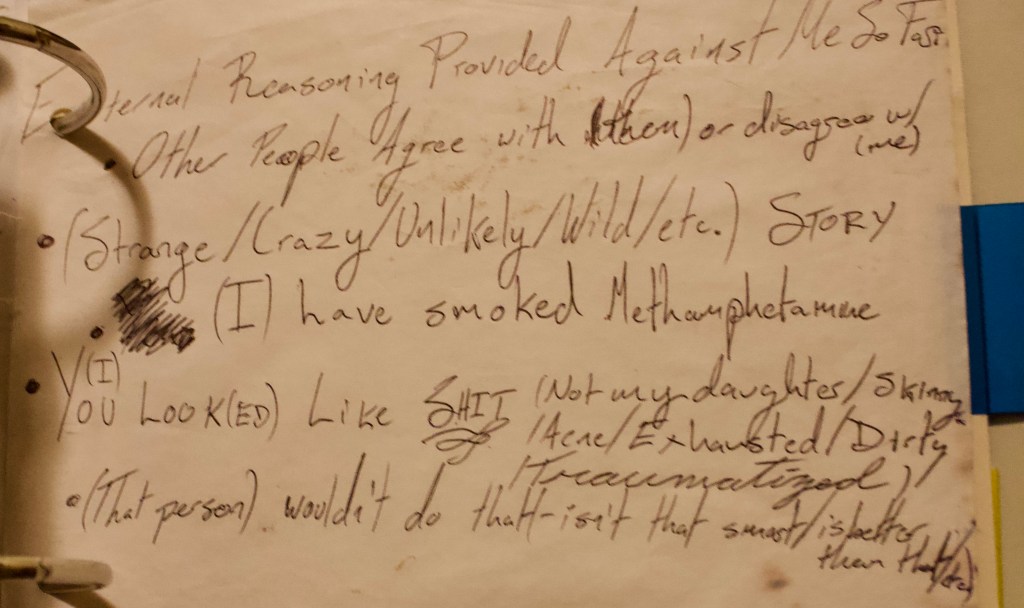 External Reasoning Provided Against Me So Fast
• Other People Agree with (them) or disagree w/
(me)
• (Strange/Crazy/Unlikely/Wild/etc.) STORY
• (I) have smoked Methamphetamine
(I)
• YOU LOOK(ED) LIKE SHIT (Not my daughter/Skinny
/Acne/Exhausted/Dirty
/Traumatized)
• (That person) wouldn't do that-isn't that smart/is better
then that/etc)